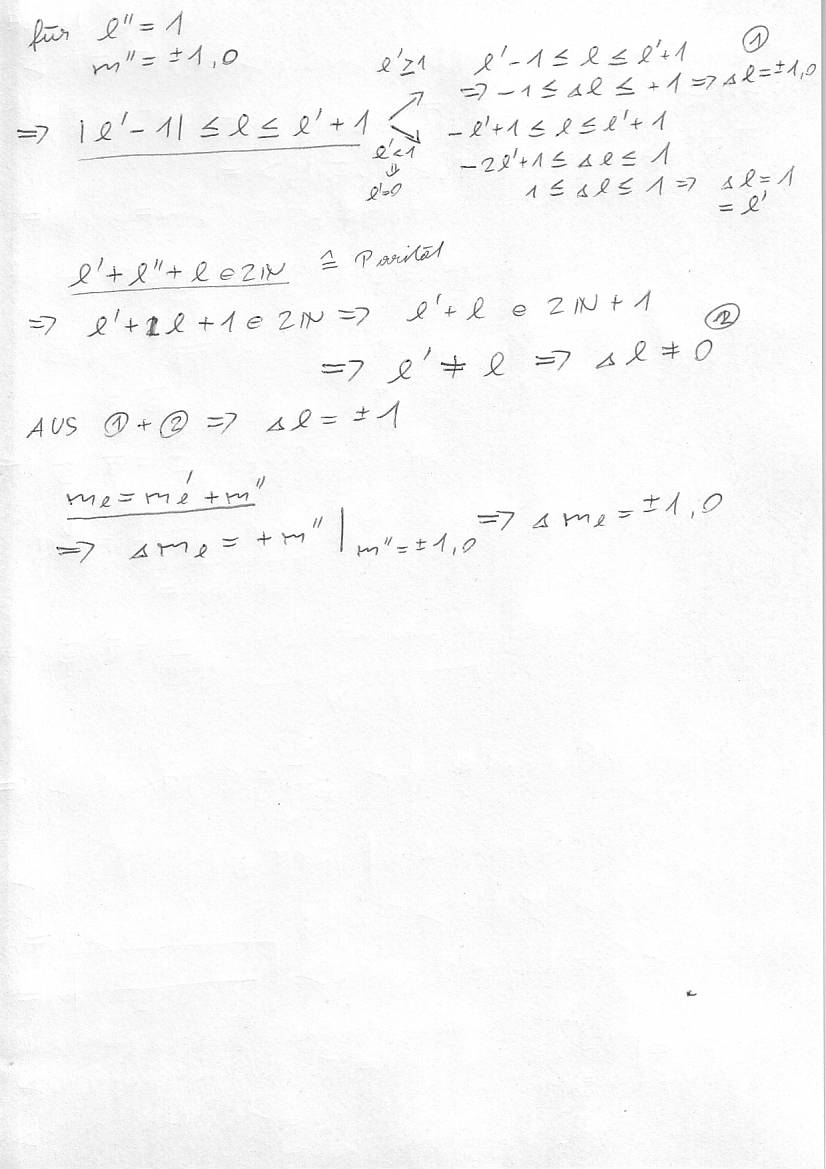 für l'' = 1
m'' = ±1, 0
l' ≥ 1 l' - 1 ≤ l ≤ l' + 1 ①
=> -1 ≤ Δl ≤ +1 => Δl = ±1, 0
=> |l' - 1| ≤ l ≤ l' + 1
-l' + 1 ≤ l ≤ l' + 1
l' < 1
⇓
l' = 0
-2l' + 1 ≤ Δl ≤ 1
1 ≤ Δl ≤ 1 => Δl = 1
= l'
l' + l'' + l ∈ 2ℕ ≙ Parität
=> l' + l + 1 ∈ 2ℕ => l' + l ∈ 2ℕ + 1
=> l' ≠ l => Δl ≠ 0 ②
AUS ① + ② => Δl = ±1
mₗ = mₗ' + m''
=> Δmₗ = +m'' | m'' = ±1, 0 => Δmₗ = ±1, 0